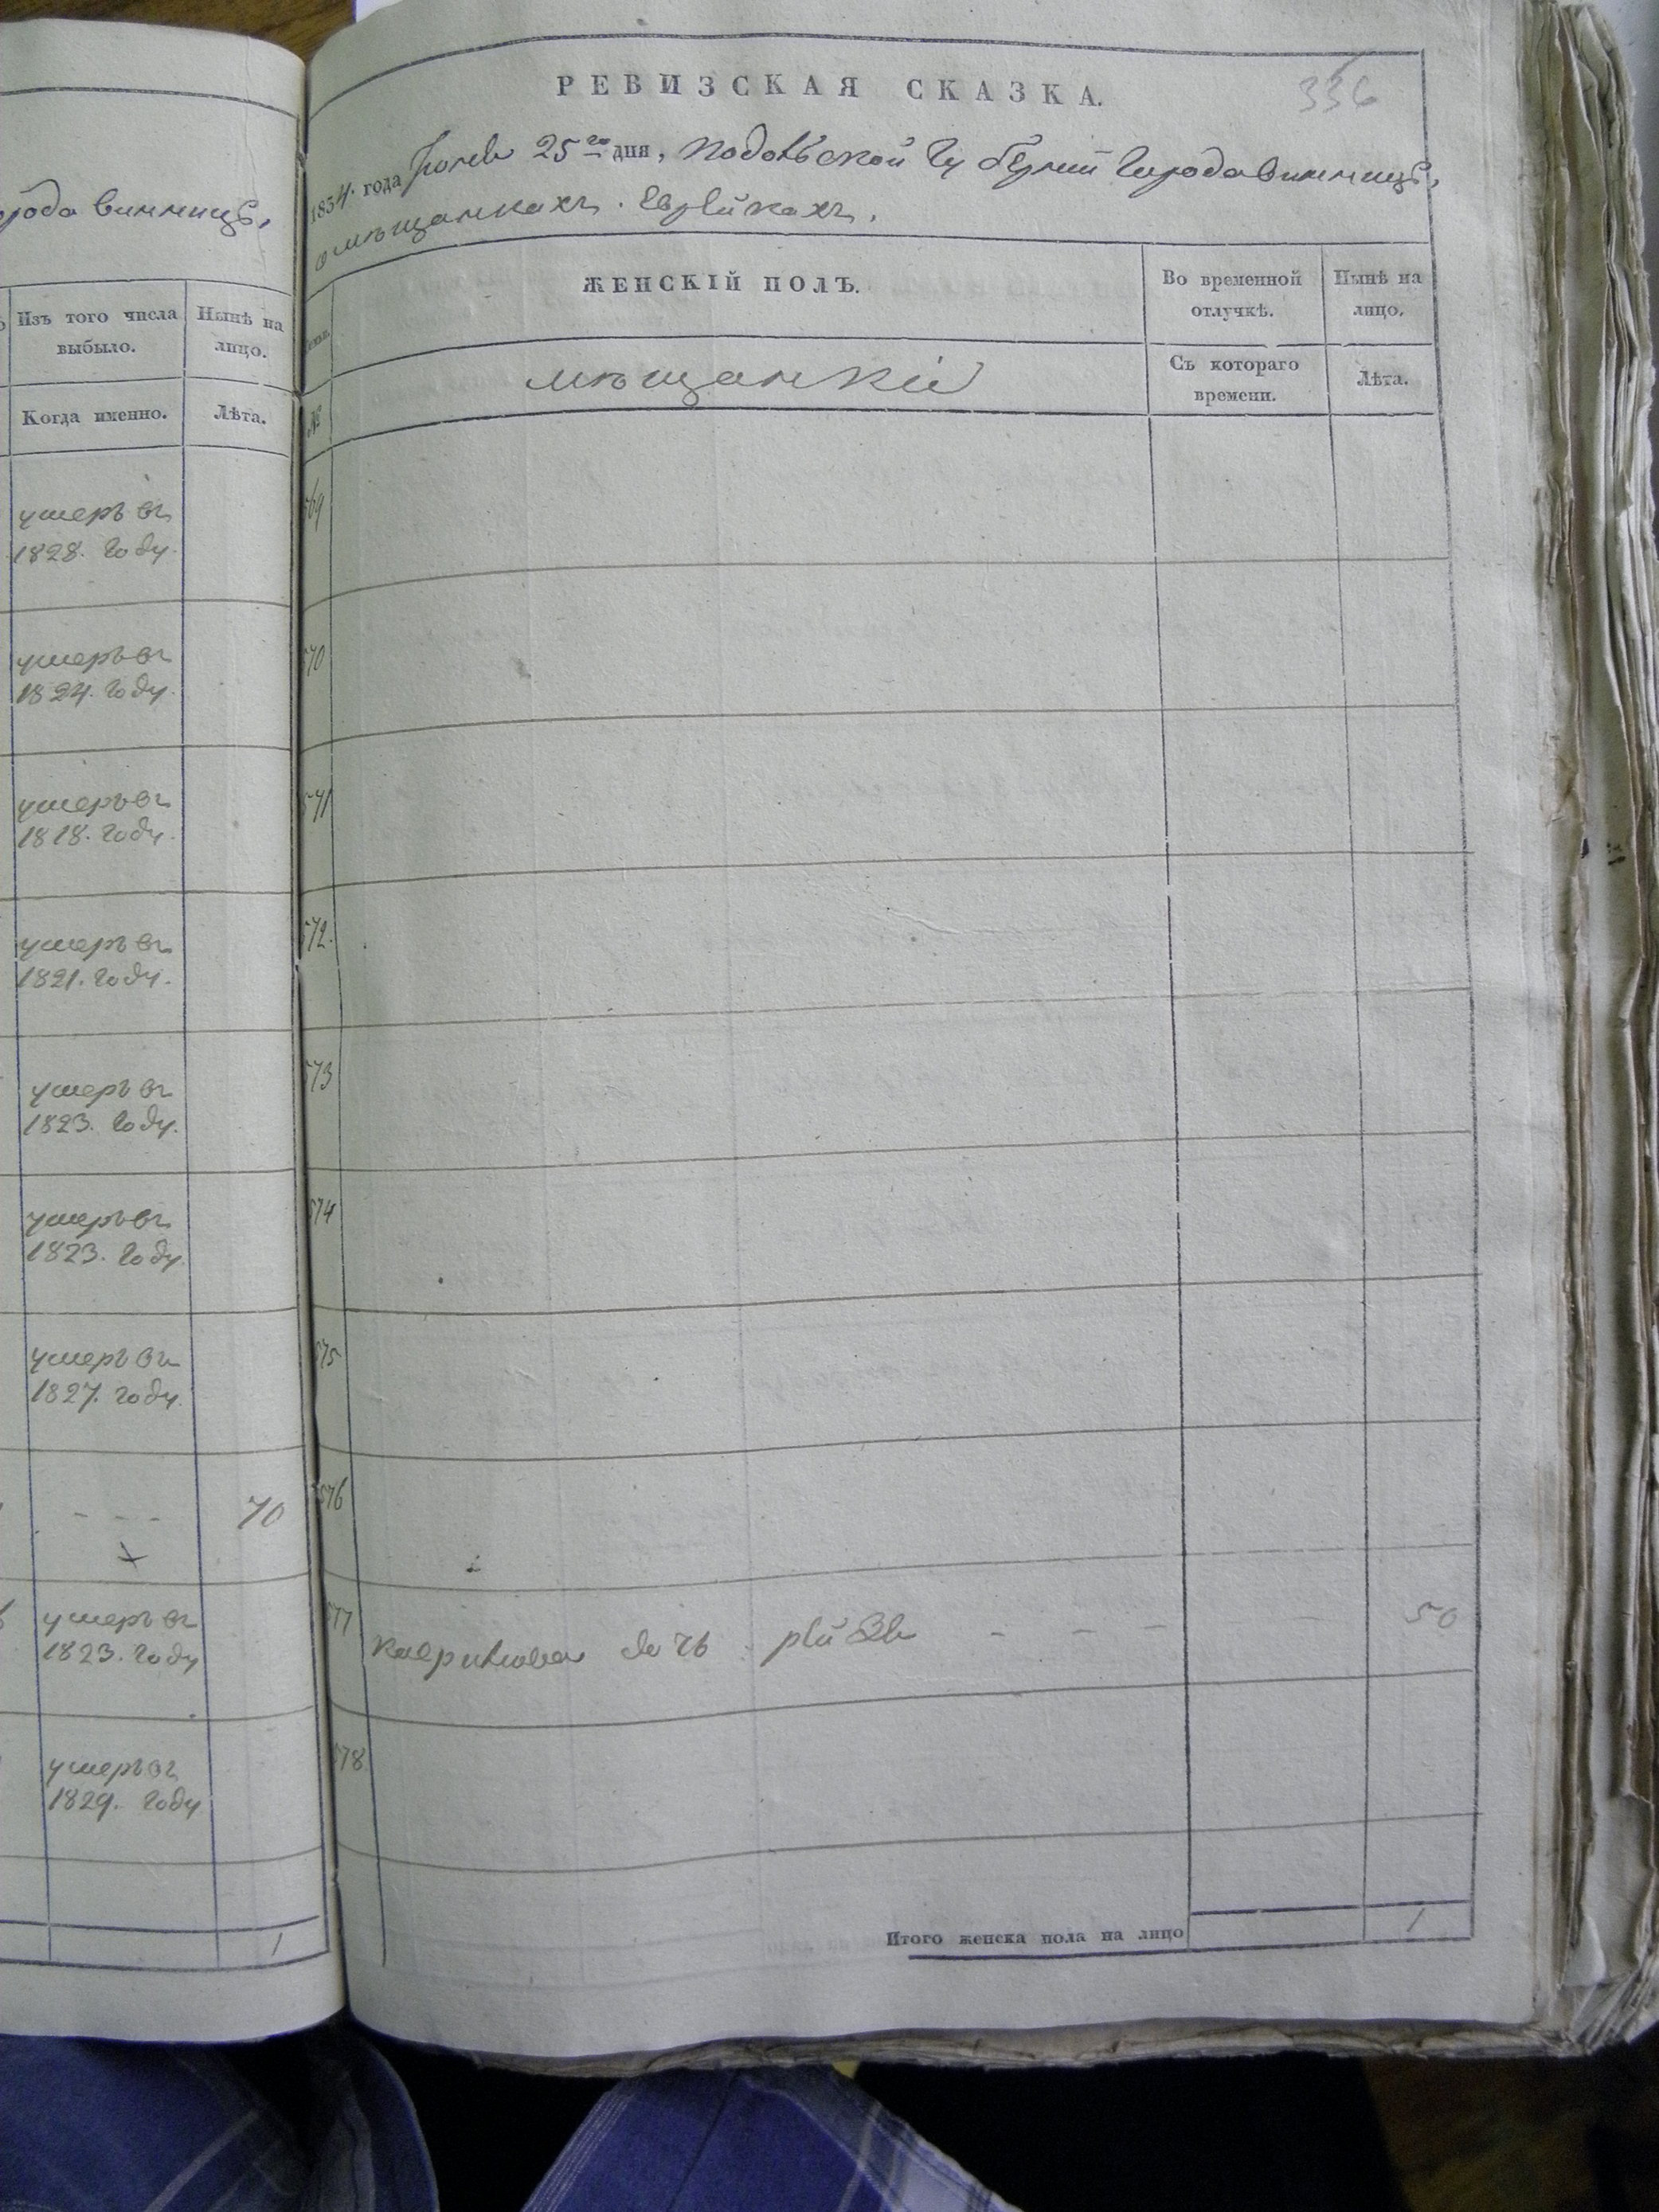 орода винницы,
Изъ того числа
выбыло.
Нынѣ на
лицо.
Когда именно.
Лѣта.
умеръ въ
1828. году.
умеръ въ
1824. году.
умеръ въ
1818. году.
умеръ въ
1821. году.
умеръ въ
1823. году.
умеръ въ
1823. году.
умеръ въ
1827. году.
- - -
70
умеръ въ
1823. году
умеръ въ
1829. году
1
336
РЕВИЗСКАЯ СКАЗКА.
1834. года 25го дня, Подольской Губерніи Города винницы,
о мѣщанкахъ. Еврейкахъ.
ЖЕНСКІЙ ПОЛЪ.
Во временной
отлучкѣ.
Нынѣ на
лицо.
№
мѣщанки
Съ котораго
времени.
Лѣта.
569
570
571
572.
573
574
575
576
577 дочь рейзя - - - - 50
578.
Итого женска пола на лицо 1